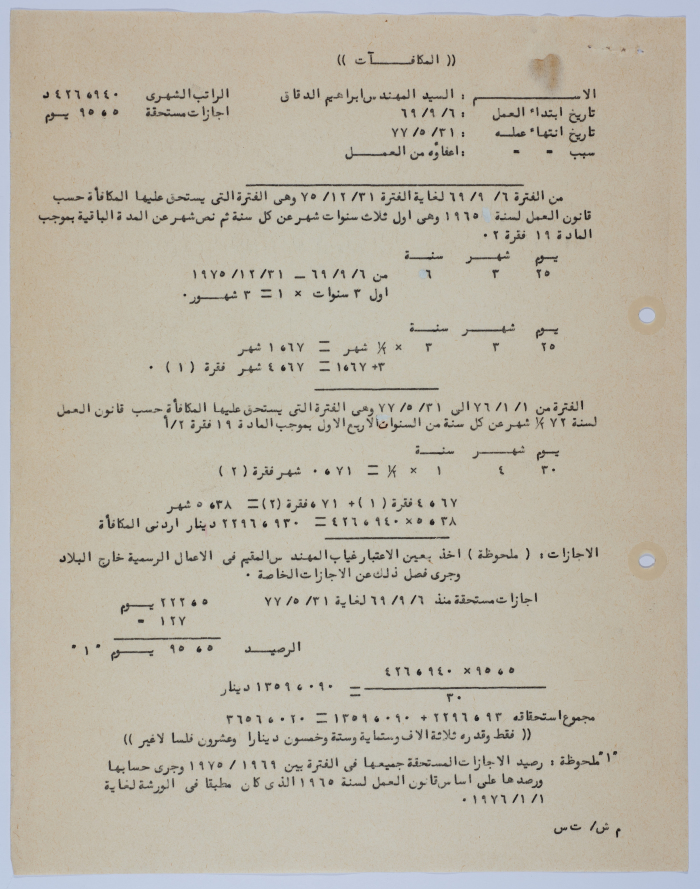 (( المكافــــآت ))
الاســــــــــم : السيد المهندس ابراهيم الدقاق الراتب الشهرى ٤٢٦٫٩٤٠ د
تاريخ ابتداء العمل : ٦٩/٩/٦ اجازات مستحقة ٩٥٫٥ يــوم
تاريخ انتهاء عملــه : ٧٧/٥/٣١
سبب = = : اعفاؤه من العمــــل
من الفترة ٦٩/٩/٦ لغاية الفترة ٧٥/١٢/٣١ وهى الفترة التى يستحق عليها المكافأة حسب
قانون العمل لسنة ١٩٦٥ وهى اول ثلاث سنوات شهر عن كل سنة ثم نص شهر عن المدة الباقية بموجب
المادة ١٩ فقرة ٢٠
يــوم شهـــر سنــة
٢٥ ٣ ٦ من ٦٩/٩/٦ – ١٩٧٥/١٢/٣١
اول ٣ سنوات × ١ = ٣ شهــور٠
يــوم شهـــر سنــة
٢٥ ٣ ٣ × ½ شهر = ١٫٦٧ شهر
٣+١٫٦٧ = ٤٫٦٧ شهر فقرة (١) ٠
الفترة من ٧٦/١/١ الى ٧٧/٥/٣١ وهى الفترة التى يستحق عليها المكافأة حسب قانون العمل
لسنة ٧٢ ½ شهر عن كل سنة من السنوات الاربع الاول بموجب المادة ١٩ فقرة ٢/أ
يــوم شهـــر سنــة
٣٠ ٤ ١ × ½ = ٠٫٧١ شهر فقرة (٢)
٤٫٦٧ فقرة (١) + ٫٧١ فقرة (٢) = ٥٫٣٨ شهر
٥٫٣٨ × ٤٢٦٫٩٤٠ = ٢٢٩٦٫٩٣٠ دينار اردنى المكافأة
الاجازات : ( ملحوظة ) اخذ بعين الاعتبار غياب المهندس المقيم فى الاعمال الرسمية خارج البلاد
وجرى فصل ذلك عن الاجازات الخاصة ٠
اجازات مستحقة منذ ٦٩/٩/٦ لغاية ٧٧/٥/٣١ ٢٢٢٫٥ يــوم
١٢٧ =
الرصيــد ٩٥٫٥ يــوم "١"
٩٥٫٥ × ٤٢٦٫٩٤٠
= ١٣٥٩٫٠٩٠ دينار
٣٠
مجموع استحقاقه ٢٢٩٦٫٩٣ + ١٣٥٩٫٠٩٠ = ٣٦٥٦٫٠٢٠
(( فقط وقدره ثلاثة الاف وستماية وستة وخمسون دينارا وعشرون فلسا لاغير ))
"١" ملحوظة : رصيد الاجازات المستحقة جميعها فى الفترة بين ١٩٦٩ / ١٩٧٥ وجرى حسابها
ورصدها على اساس قانون العمل لسنة ١٩٦٥ الذى كان مطبقا فى الورشة لغاية
١٩٧٦/١/١ ٠
م ش/ ت س